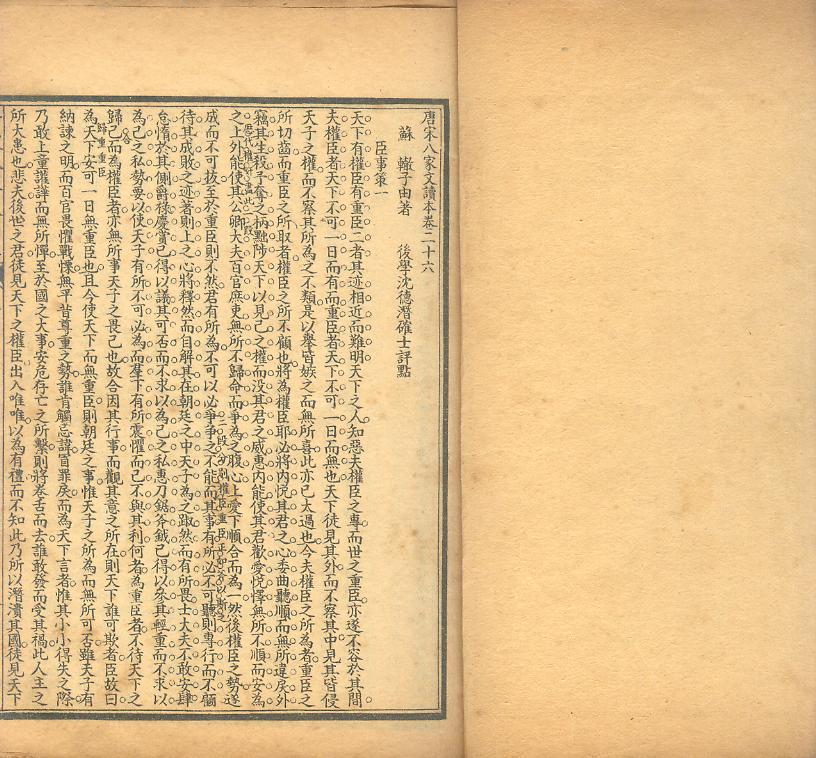 唐宋八家文讀本卷二十六
蘇　轍子由著　後學沈德潛確士評點
臣事策一
天下有權臣有重臣二者其迹相近而難明天下之人知惡夫權臣之專而世之重臣亦遂不容於其間
夫權臣者天下不可一日而有而重臣者天下不可一日而無也天下徒見其外而不察其中見其皆侵
天子之權而不察其所為之不類是以舉皆嫉之而無所喜此亦已太過也今夫權臣之所為者重臣之
所切齒而重臣之所取者權臣之所不顧也將為權臣耶必將內悅其君之心委曲聽順而無所違戾外
竊其生殺予奪之柄黜陟天下以見己之權而沒其君之威惠內能使其君歡愛悅懌無所不順而安為
之上外能使其公卿大夫百官庶吏無所不歸命而爭為之腹心上愛下順合而為一然後權臣之勢遂
成而不可拔至於重臣則不然君有所為不可以必爭爭之不能而其事有所必不可聽則專行而不顧
待其成敗之迹著則上之心將釋然而自解其在朝廷之中天子為之踧然而有所畏士大夫不敢安肆
怠惰於其側爵祿慶賞己得以議其可否而不求以為己之私惠刀鋸斧鉞己得以參其輕重而不求以
為己之私勢要以使天子有所不可必為而羣下有所震懼而己不與其利何者為重臣者不待天下之
歸己而為權臣者亦無所事天子之畏己也故合因其行事而觀其意之所在則天下誰可欺者臣故曰
歸重重臣
為天下安可一日無重臣也且今使天下而無重臣則朝廷之事惟天子之所為而無所可否雖天子有
納諫之明而百官畏懼戰慄無平昔尊重之勢誰肯觸忌諱冒罪戾而為天下言者惟其小小得失之際
乃敢上章讙譁而無所憚至於國之大事安危存亡之所繫則將卷舌而去誰敢發而受其禍此人主之
所大患也悲夫後世之君徒見天下之權臣出入唯唯以為有禮而不知此乃所以潛潰其國徒見天下